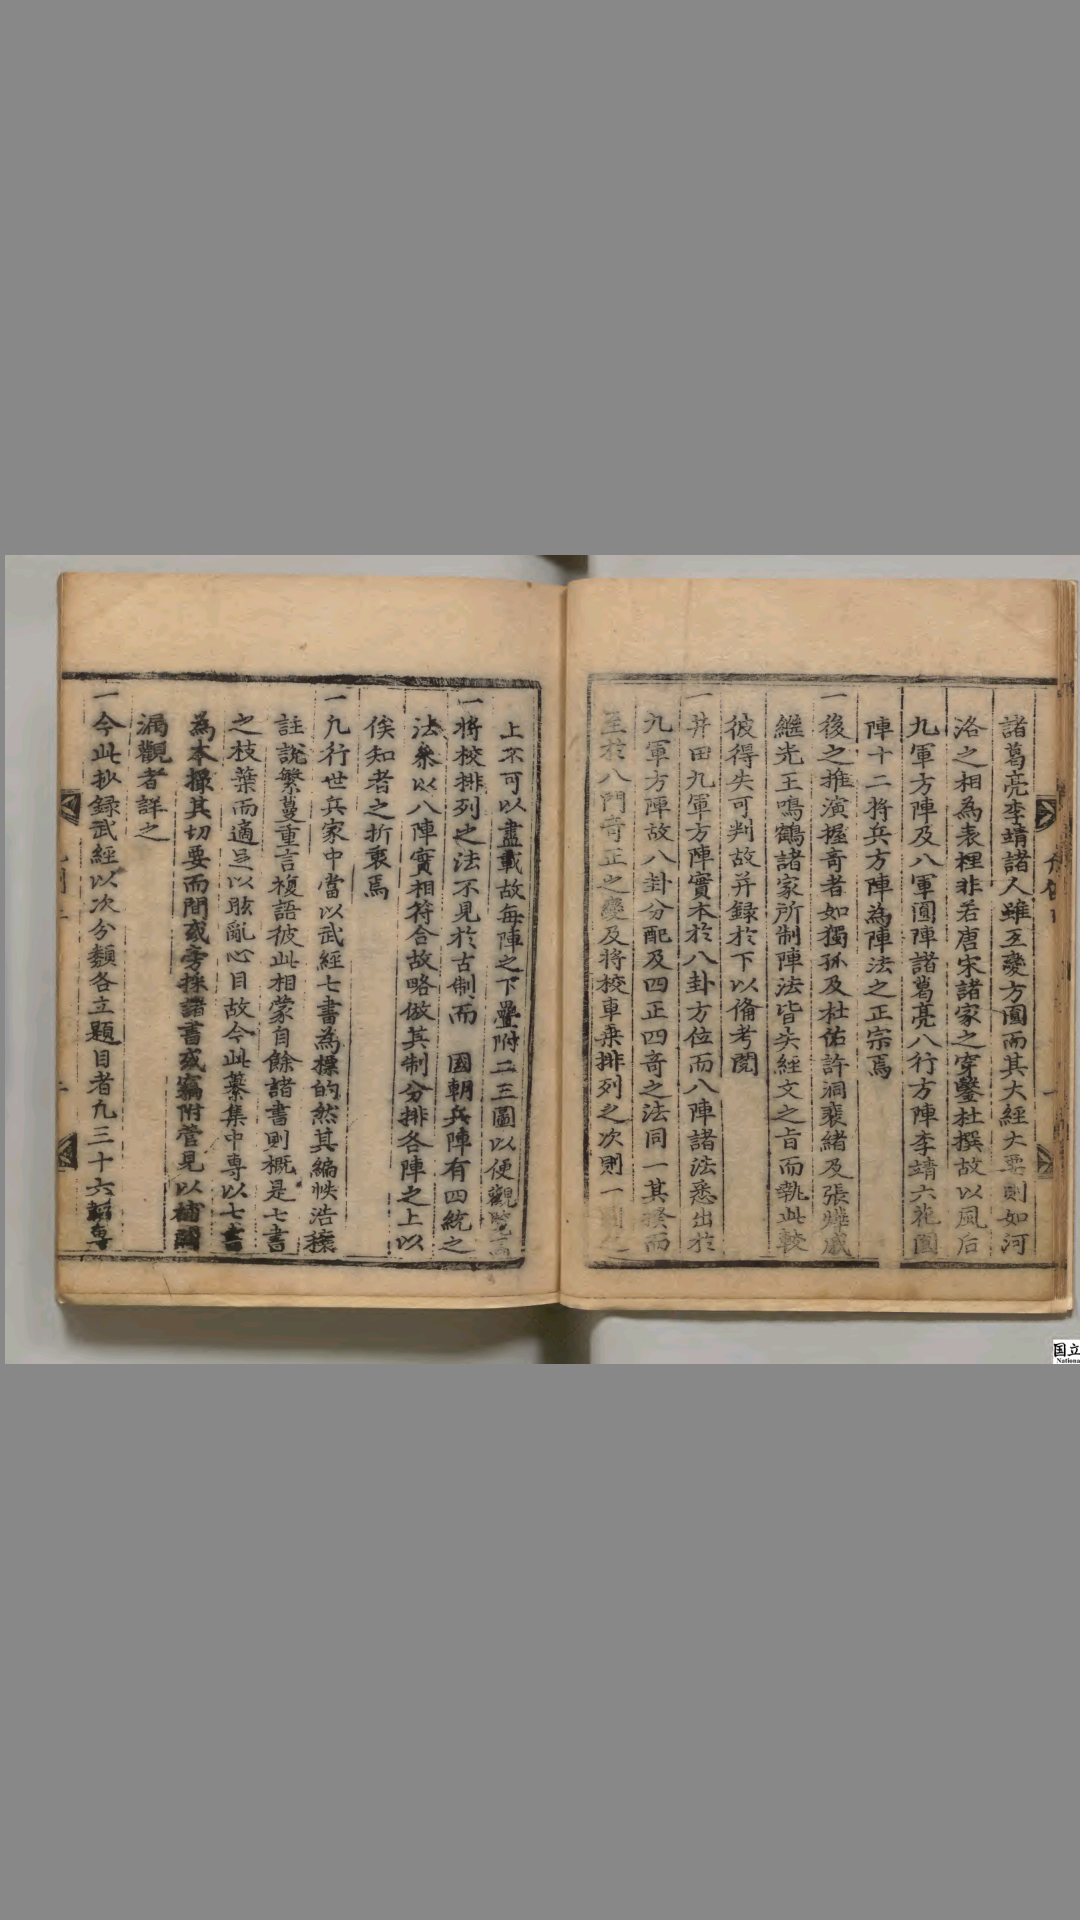 諸葛亮李靖諸人雖互變方圓而其大經大要則如河
洛之相為表裡非若唐宋諸家之穿鑿杜撰故以風后
九軍方陣及八軍圓陣諸葛亮八行方陣李靖六花圓
陣十二將兵方陣為陣法之正宗焉
一後之推演握奇者如獨孤及杜佑許洞裴緒及張燁戚
繼光王鳴鶴諸家所制陣法皆失經文之旨而執此較
彼得失可判故并録於下以俻考閱
一井田九軍方陣實本於八卦方位而八陣諸法悉出於
九軍方陣故八卦分配及四正四奇之法同一其揆而
至於八門奇正之變及將校車乘排列之次則一圖之
上不可以盡載故每陣之下疊附二三圖以便觀覽焉
一將校排列之法不見於古制而 國朝兵陣有四統之
法叅以八陣實相符合故略倣其制分排各陣之上以
俟知者之折衷焉
一凡行世兵家中當以武經七書為標的然其編帙浩穰
註說繁蔓重言複語彼此相蒙自餘諸書則概是七書
之枝葉而適足以眩亂心目故今此纂集中專以七書
為本撮其切要而間或旁採諸書或竊附管見以補闕
漏觀者詳之
一今此抄録武經以次分類各立題目者凡三十六
国立
Nationa